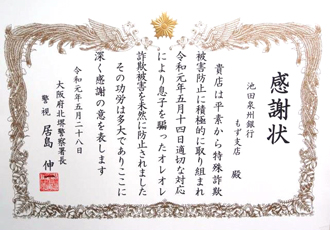 感謝状
池田泉州銀行
もず支店 殿
貴店は平素から特殊詐欺
被害防止に積極的に取り組まれ
令和元年五月十四日適切な対応
により息子を騙ったオレオレ
詐欺被害を未然に防止されました
その功労は多大でありここに
深く感謝の意を表します
令和元年五月二十八日
大阪府北堺警察署長
警視 居島 伸一